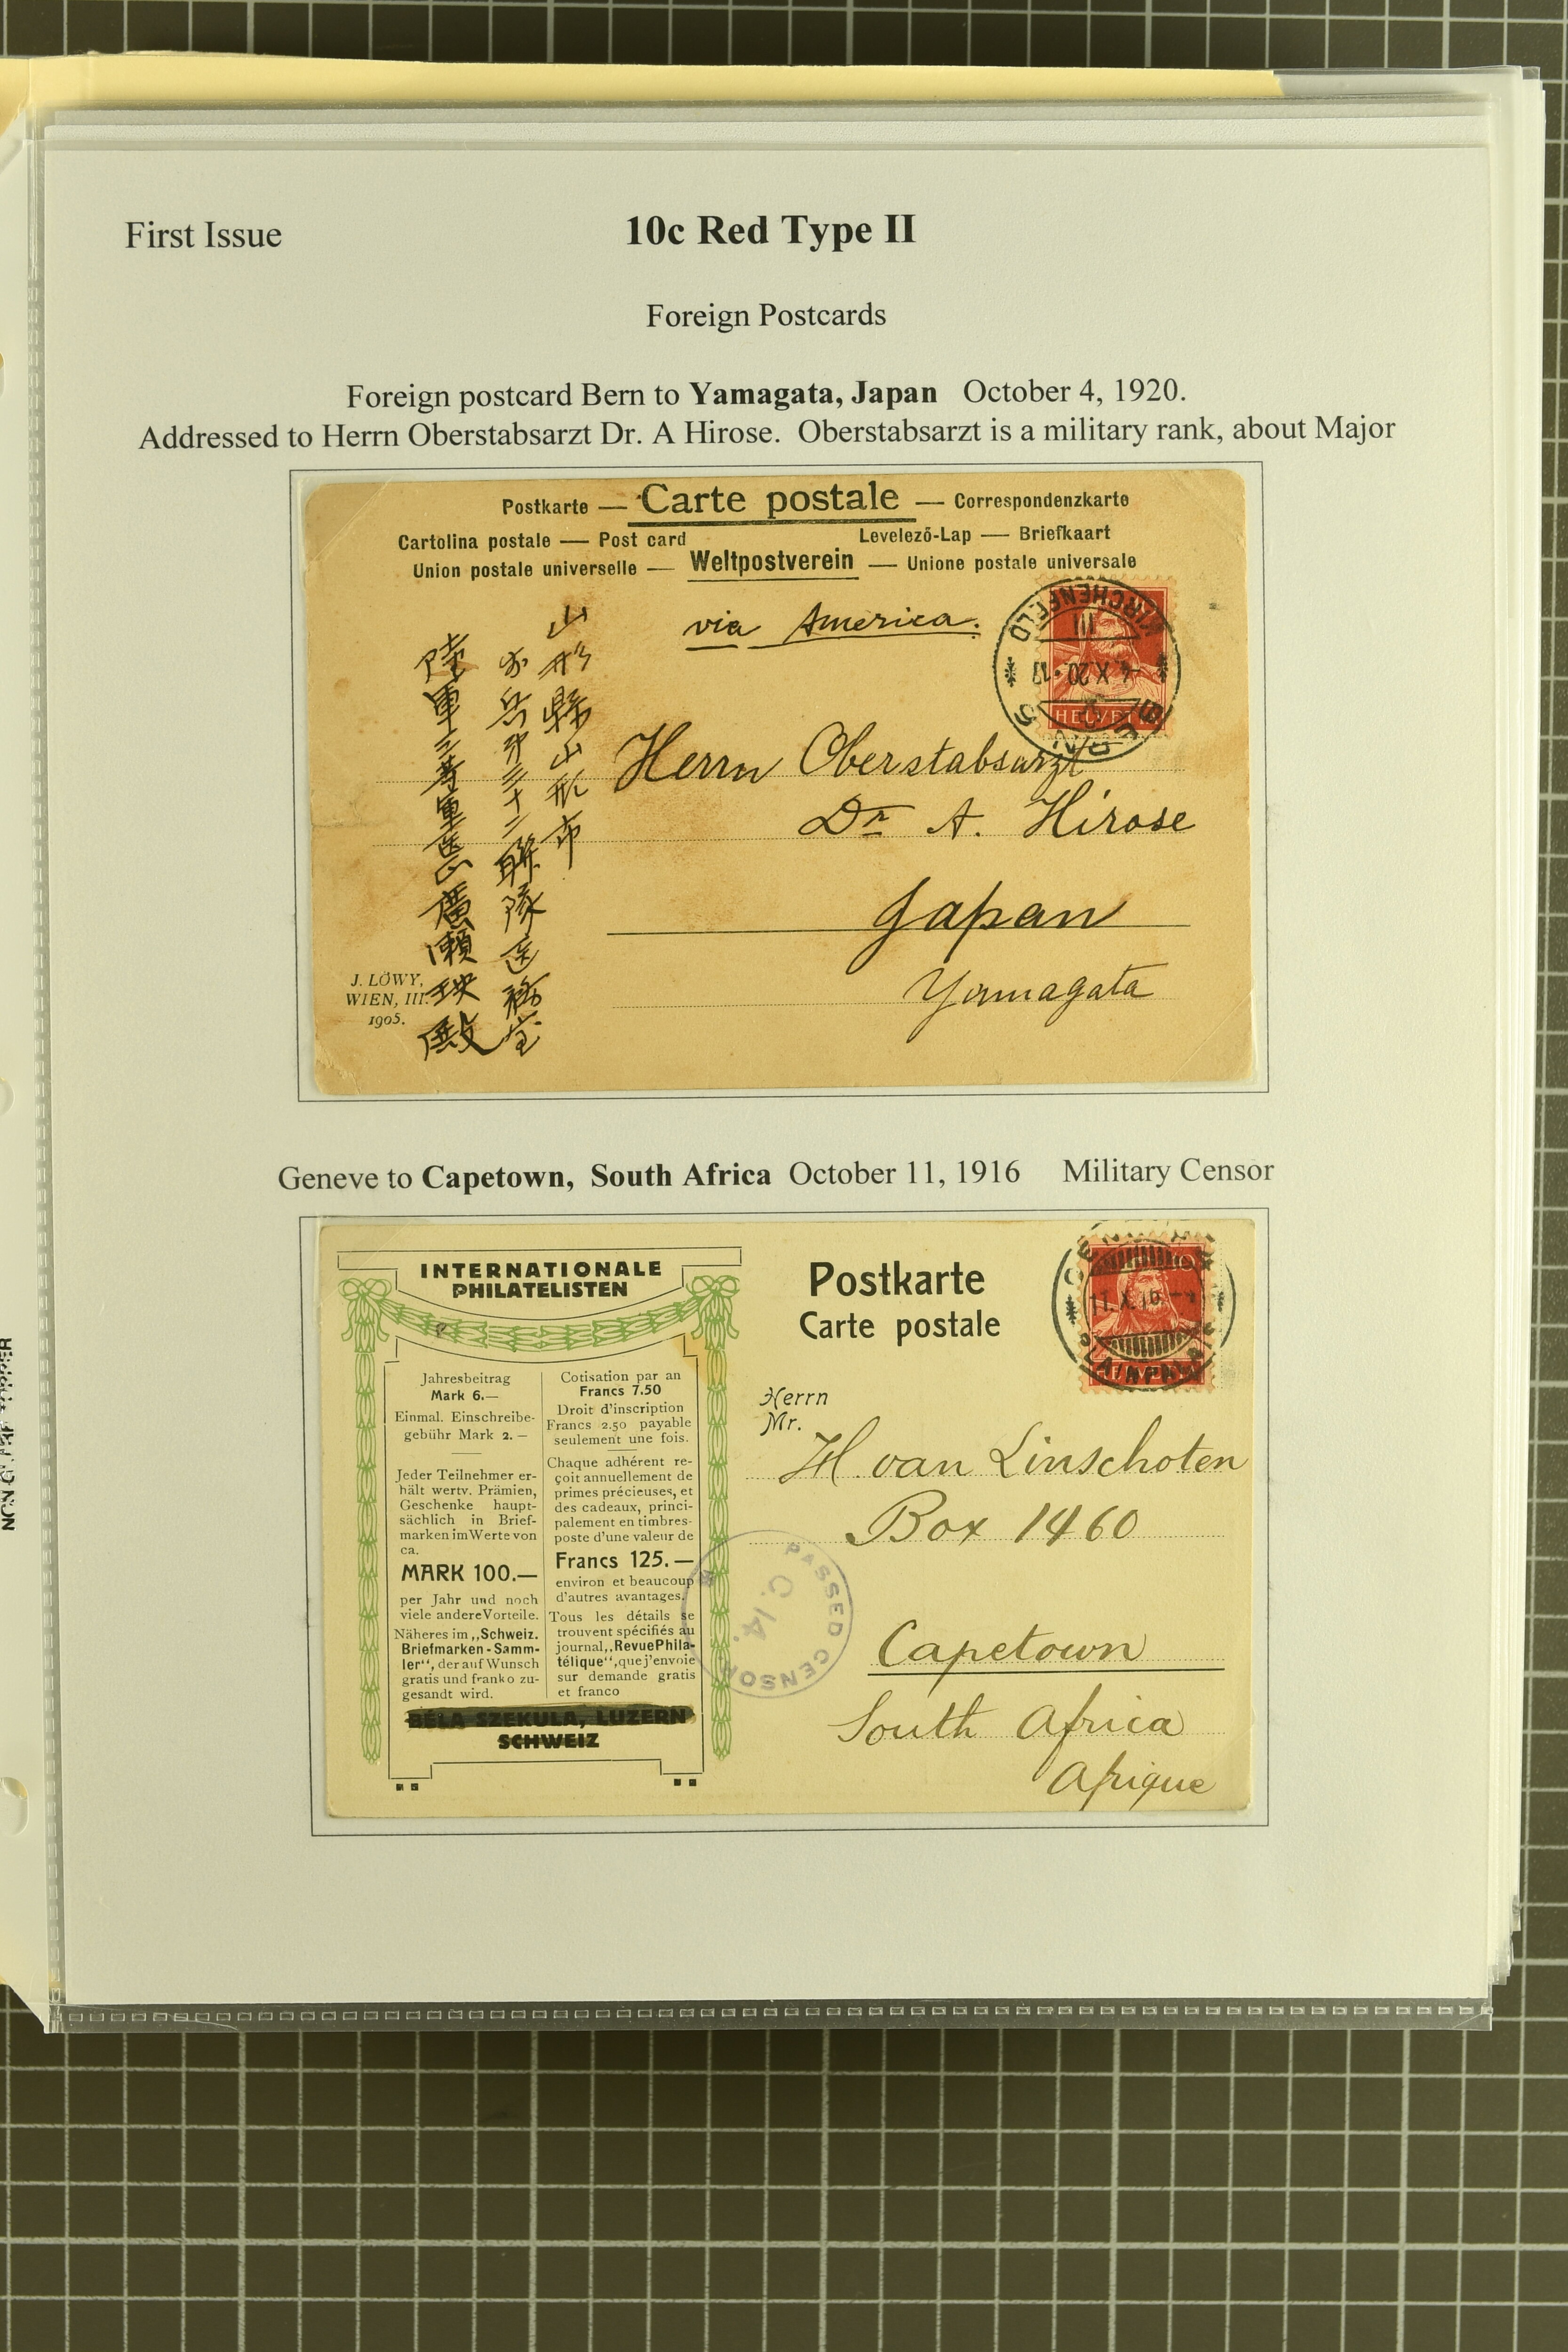 First Issue
10c Red Type II
Foreign Postcards
Foreign postcard Bern to Yamagata, Japan October 4, 1920.
Addressed to Herrn Oberstabsarzt Dr. A Hirose. Oberstabsarzt is a military rank, about Major
Postkarte — Carte postale — Correspondenzkarte
Cartolina postale — Post card Levelező-Lap — Briefkaart
Union postale universelle — Weltpostverein — Unione postale universale
via America.
KIRCHENFELD
III
-4.X.20.-13
BERN 5
HELVETIA
山形縣山形市
歩兵第三十二聯隊医務室
陸軍三等軍医正廣瀬映殿
Herrn Oberstabsarzt
Dr A. Hirose
Japan
Yamagata
J. LÖWY,
WIEN, III.
1905.
Geneve to Capetown, South Africa October 11, 1916 Military Censor
INTERNATIONALE
PHILATELISTEN
Jahresbeitrag
Mark 6.—
Einmal. Einschreibe-
gebühr Mark 2.—
Jeder Teilnehmer er-
hält wertv. Prämien,
Geschenke haupt-
sächlich in Brief-
marken im Werte von
ca.
MARK 100.—
per Jahr und noch
viele andere Vorteile.
Näheres im „Schweiz.
Briefmarken-Samm-
ler“, der auf Wunsch
gratis und franko zu-
gesandt wird.
Cotisation par an
Francs 7.50
Droit d'inscription
Francs 2.50 payable
seulement une fois.
Chaque adhérent re-
çoit annuellement de
primes précieuses, et
des cadeaux, princi-
palement en timbres-
poste d'une valeur de
Francs 125.—
environ et beaucoup
d'autres avantages.
Tous les détails se
trouvent spécifiés au
journal „Revue Phila-
télique“, que j'envoie
sur demande gratis
et franco
BÉLA SZEKULA, LUZERN
SCHWEIZ
Postkarte
Carte postale
11.X.16
PLAINPALAIS
Herrn
Mr.
H. van Linschoten
Box 1460
Capetown
South Africa
Afrique
PASSED CENSOR
C.14.